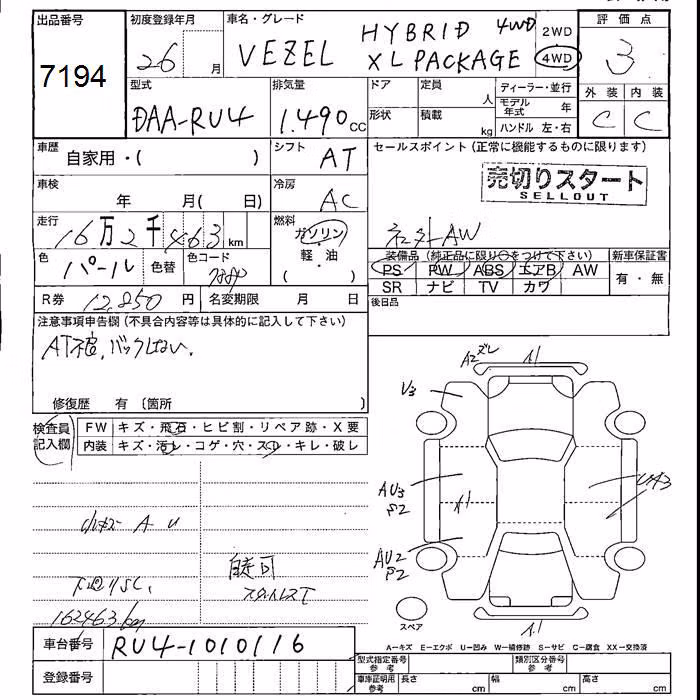 出品番号
7194
初度登録年月
26 月
車名・グレード
VEZEL HYBRID 4WD
XL PACKAGE
2WD
4WD
評価点
3
外装 内装
C C
型式
DAA-RU4
排気量
1.490 cc
ドア
定員
人
形状
積載
kg
ディーラー・並行
モデル年式 年
ハンドル 左・右
車歴
自家用・( )
シフト
AT
車検
年 月( 日)
冷房
AC
走行
16万2千463 km
燃料
ガソリン
・
軽・油
( )
色
パール
色替
色コード
R券 12,850 円
名変期限 月 日
セールスポイント (正常に機能するものに限ります)
売切りスタート
SELLOUT
社外AW
装備品 (純正品に限り○をつけて下さい)
PS PW ABS エアB AW
SR ナビ TV カワ
新車保証書
有・無
後日品
注意事項申告欄 (不具合内容等は具体的に記入して下さい)
AT不良,バックしない.
修復歴 有 〔箇所 〕
検査員記入欄
FW キズ・飛石・ヒビ割・リペア跡・X要
内装 キズ・汚レ・コゲ・穴・スレ・キレ・破レ
小キズ A U
下廻りSC,
162463km
自走可
A2 ズレ
A1
U3
AU3
S2
A1
UA3
AU2
S2
A1
スペア
A−キズ E−エクボ U−凹み W−補修跡 S−サビ C−腐食 XX−交換済
車台番号
RU4-1010116
登録番号
型式指定番号 参考
類別区分番号 参考
車庫証明用 参考
長さ cm
幅 cm
高さ cm